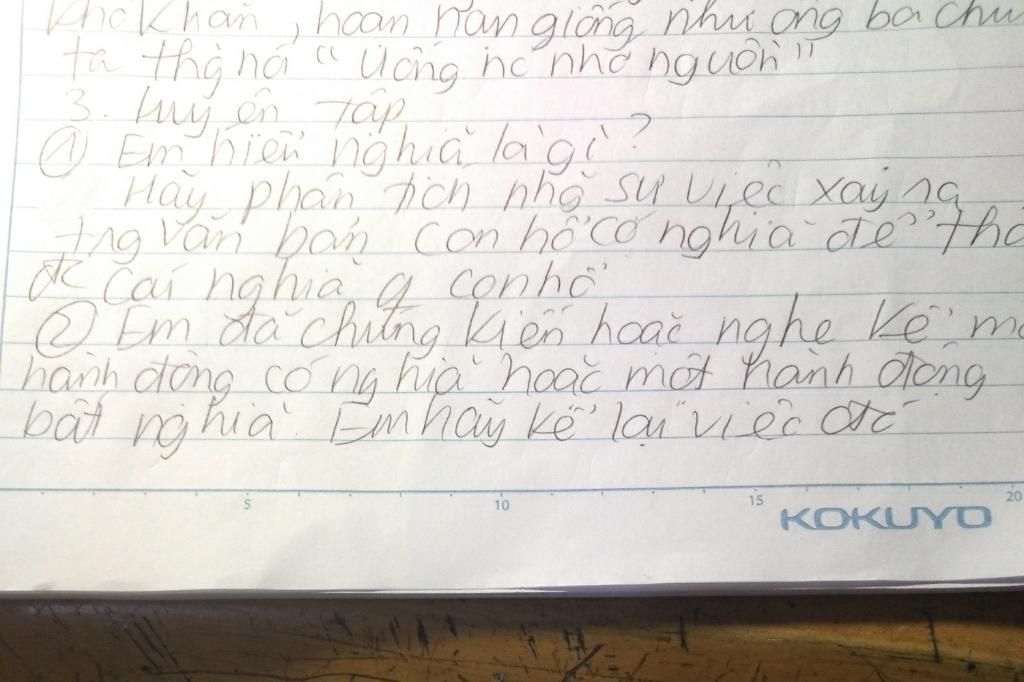 khó khăn, hoạn nạn giống như ông bà chú
ta thg nó " Uống nc nhớ nguồn "
3. Luyện tập
① Em hiểu nghĩa là gì ?
Hãy phân tích nhg sự việc xảy ra
trg văn bản con hổ có nghĩa để thấ
đc cái nghĩa q con hổ
② Em đã chứng kiến hoặc nghe kể mộ
hành động có nghĩa hoặc một hành động
bất nghĩa. Em hãy kể lại việc đc
5 10 15 20
KOKUYO